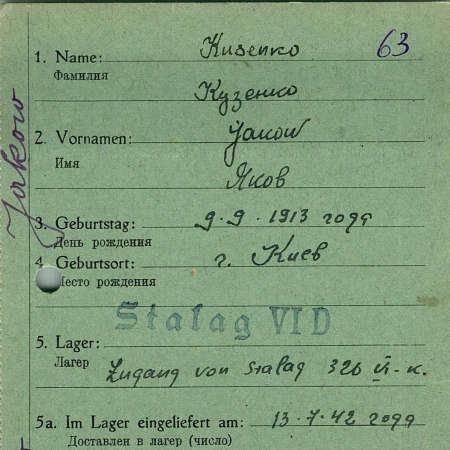 63
1. Name: Кизепко
Фамилия
Кузенко
2. Vornamen: Jakow
Имя
Яков
Jakow
3. Geburtstag: 9.9.1913 года
День рождения
4. Geburtsort: г. Киев
Место рождения
Stalag VI D
5. Lager:
Лагер Zugang von Stalag 326 VI-K.
5a. Im Lager eingeliefert am: 13.7.42 года
Доставлен в лагер (число)